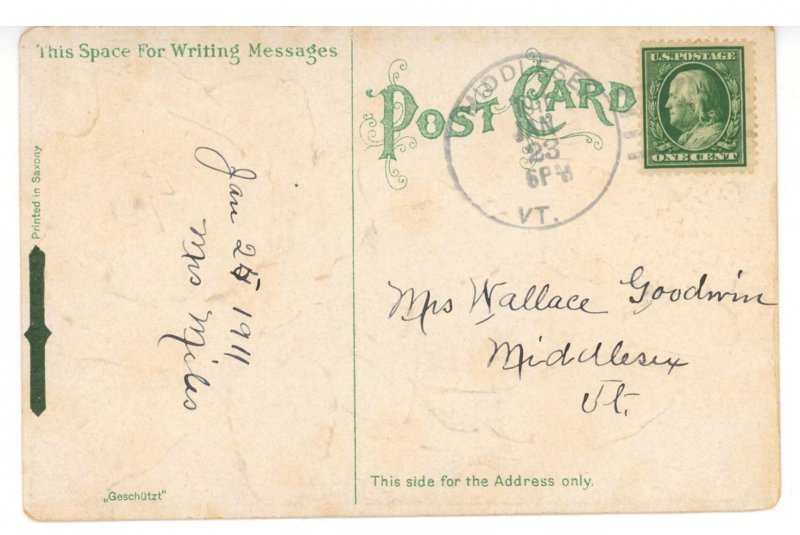 This Space For Writing Messages
Printed in Saxony
Jan 25 1911
Mrs Miles
„Geschützt"
POST CARD
MIDDLESEX
JAN
23
6PM
VT.
U.S. POSTAGE
ONE CENT
Mrs Wallace Goodwin
Middlesex
Vt.
This side for the Address only.